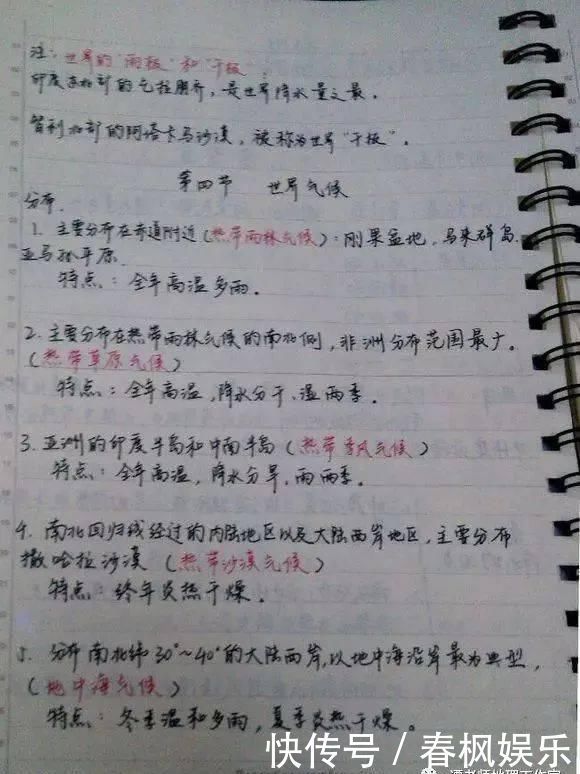 注：世界的"雨极"和"干极"：
印度东北部的乞拉朋齐，是世界降水量之最。
智利北部的阿塔卡马沙漠，被称为世界"干极"。
第四节 世界气候
分布.
1. 主要分布在赤道附近（热带雨林气候）：刚果盆地，马来群岛，
亚马孙平原.
特点：全年高温多雨。
2. 主要分布在热带雨林气候的南北侧，非洲分布范围最广。
（热带草原气候）
特点：全年高温，降水分干、湿两季。
3. 亚洲的印度半岛和中南半岛（热带季风气候）
特点：全年高温，降水分旱、雨两季。
4. 南北回归线经过的内陆地区以及大陆西岸地区，主要分布
撒哈拉沙漠（热带沙漠气候）
特点：终年炎热干燥.
5. 分布南北纬30°~40°的大陆西岸，以地中海沿岸最为典型，
（地中海气候）
特点：冬季温和多雨，夏季炎热干燥。
快传号 / 春枫娱乐